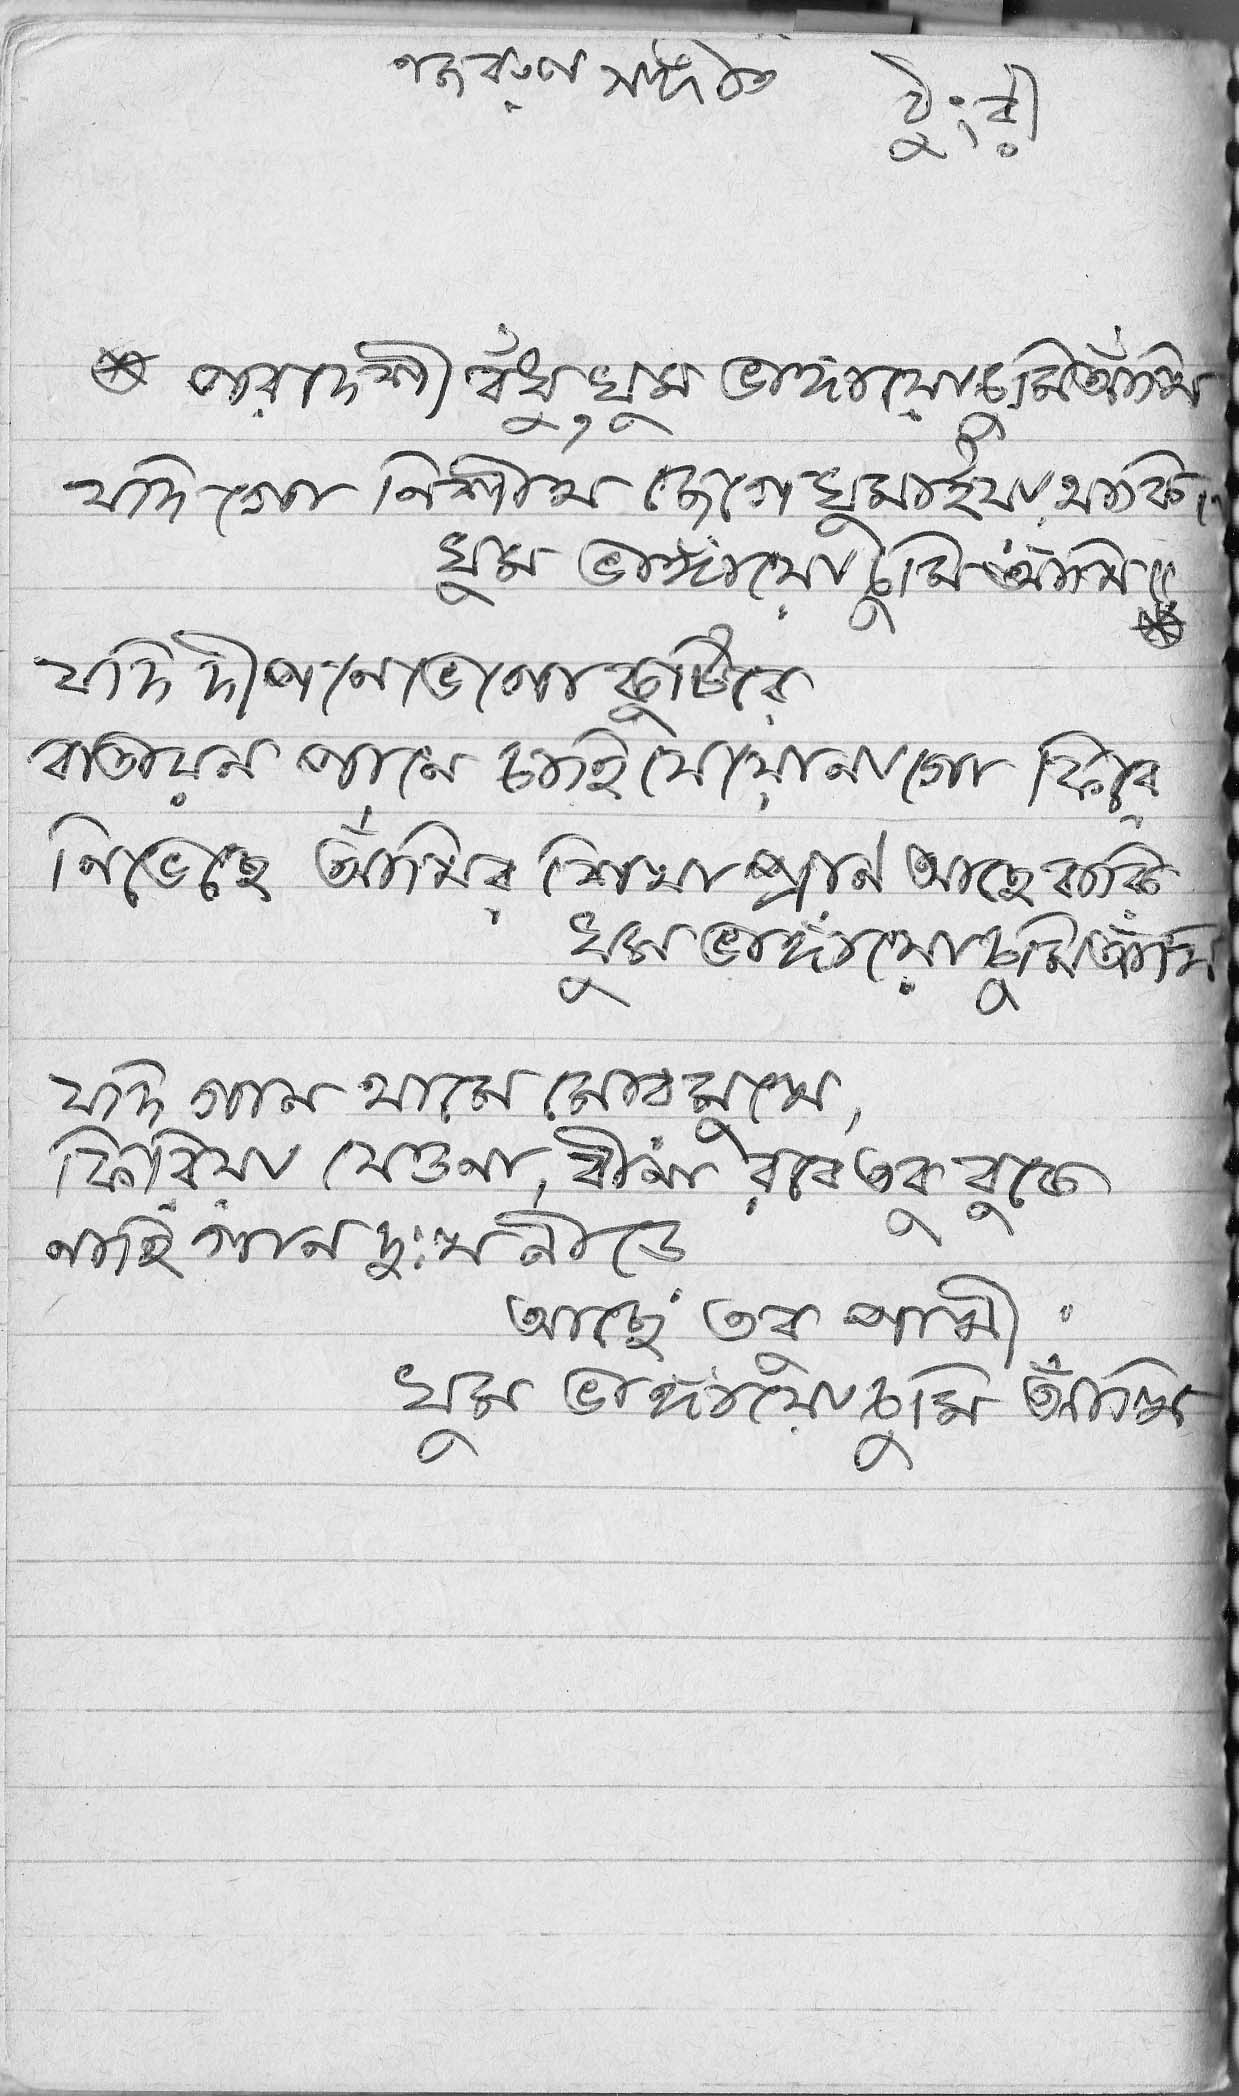 নজরুল সঙ্গীত ঠুংরী
পরদেশী বঁধু, ঘুম ভাঙ্গায়ো চুমি আঁখি
যদি গো নিশীথ জেগে ঘুমাইয়া থাকি
ঘুম ভাঙ্গায়ো চুমি আঁখি॥
যদি দীপ নেভে গো কুটিরে
বাতায়ন পানে চাহি যেয়োনা গো ফিরে
নিভেছে আঁখির শিখা প্রাণ আছে বাকি
ঘুম ভাঙ্গায়ো চুমি আঁখি
যদি গান থামে মোর মুখে,
ফিরিয়া যেওনা, বীনা রবে তবু বুকে
নাহি গান দুঃখ নীড়ে
আছে তবু পাখী:
ঘুম ভাঙ্গায়ো চুমি আঁখি